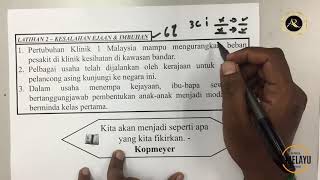 LATIHAN 2 – KESALAHAN EJAAN & IMBUHAN
62 3C i
1. Pertubuhan Klinik 1 Malaysia mampu mengurangkan beban
pesakit di klinik kesihatan di kawasan bandar.
2. Pelbagai usaha telah dijalankan oleh kerajaan untuk
pelancong asing kunjungi ke negara ini.
3. Dalam usaha menempa kejayaan, ibu-bapa
bertanggungjawab pembentukan anak-anak menjadi
berminda kelas pertama.
Kita akan menjadi seperti apa
yang kita fikirkan. -
Kopmeyer
MELAYU